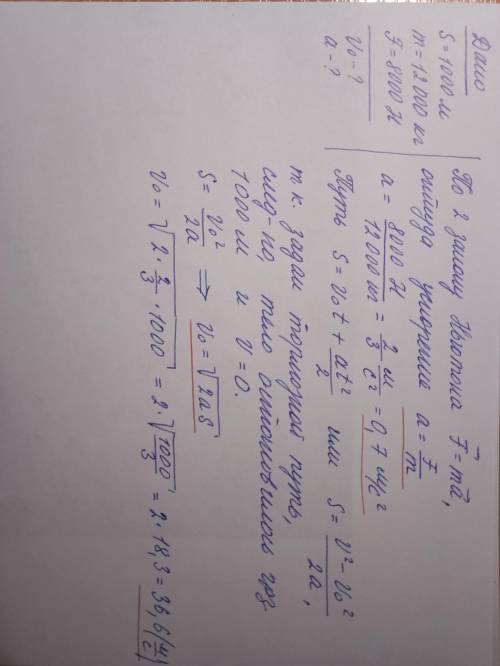 Дано
S = 1000 м
m = 12 000 кг
F = 8000 Н
V₀ - ?
a - ?
По 2 закону Ньютона F⃗ = ma⃗,
откуда ускорение a = F/m
a = 8000 Н / 12000 m = 2/3 м/с² = 0,7 м/с²
Путь S = V₀t + at²/2 или S = V² - V₀² / 2a,
т.к. задан тормозной путь,
след-но, тело остановилось чрз
1000 м и V = 0.
S = V₀²/2a ⇒ V₀ = √2aS
V₀ = √2 · 2/3 · 1000 = 2 · √1000/3 = 2 · 18,3 = 36,6 (м/с)